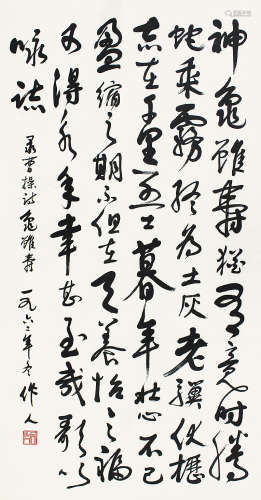 神龜雖壽猶有竟時騰
蛇乘霧終為土灰老驥伏櫪
志在千里烈士暮年壯心不已
盈縮之期不但在天養怡之福
可得永年幸甚至哉歌以
咏誌
录曹操詩龜雖壽 一九六二年冬 作人